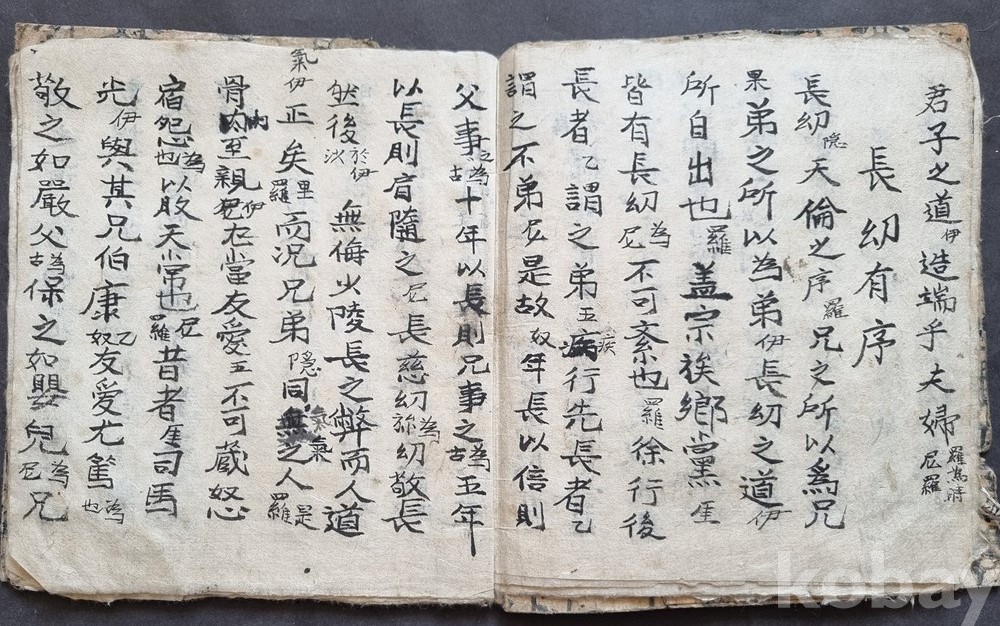 君子之道伊造端乎夫婦羅爲時尼羅
長幼有序
長幼隱天倫之序羅兄之所以爲兄
果弟之所以為弟伊長幼之道伊
所自出也羅盖宗族鄉黨厓
皆有長幼為尼不可紊也羅徐行後
長者乙謂之弟五疾行先長者乙
謂之不弟尼是故奴年長以倍則
父事之為古十年以長則兄事之為古五年
以長則肩隨之尼長慈幼為㫆幼敬長
然後於伊沙無侮少陵長之弊而人道
氣伊正矣里羅而况兄弟隱同氣之人是羅
骨肉至親伊尤當友愛五不可藏怒
宿怨為也以敗天常也尼羅昔者厓司馬
光伊與其兄伯康乙奴友愛尤篤為也
敬之如嚴父為古保之如嬰兒為尼兄
kobay